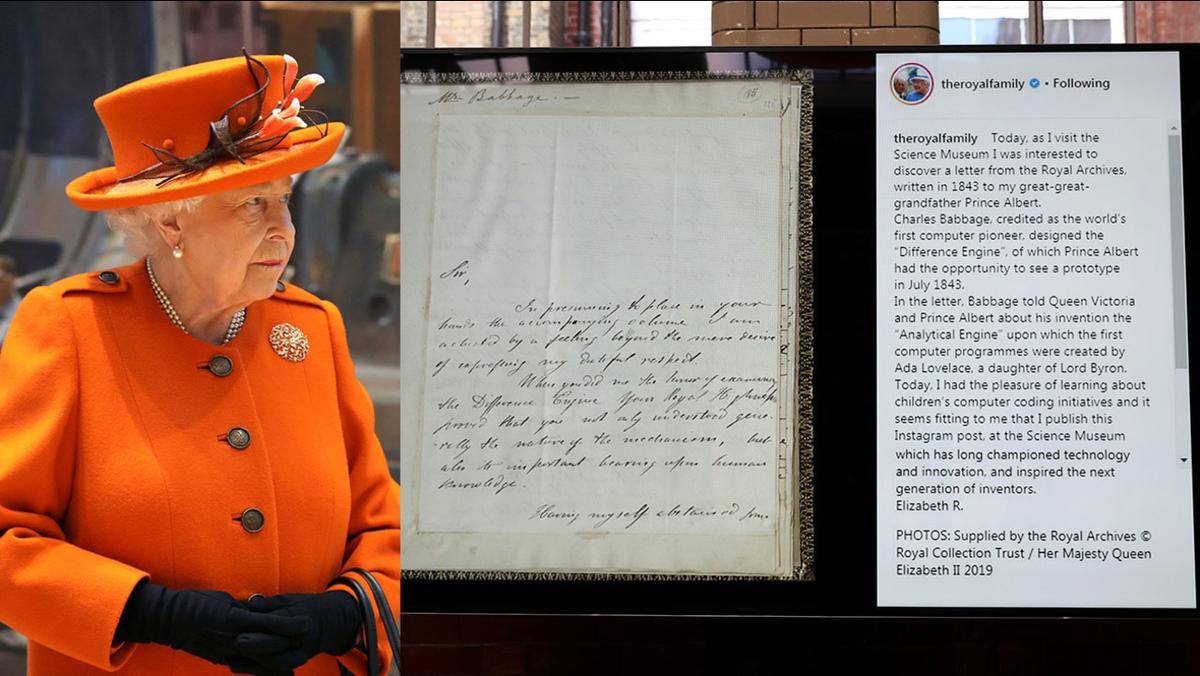 Mr. Babbage. —
Sir,
In presuming to place in your
hands the accompanying volume I am
actuated by a feeling beyond the mere desire
of expressing my dutiful respect.
When you did me the honor of examining
the Difference Engine Your Royal Highness
proved that you not only understood gene-
-rally the nature of the mechanism, but
also its important bearing upon human
knowledge.
Having myself abstained from
theroyalfamily • Following
theroyalfamily Today, as I visit the
Science Museum I was interested to
discover a letter from the Royal Archives,
written in 1843 to my great-great-
grandfather Prince Albert.
Charles Babbage, credited as the world's
first computer pioneer, designed the
“Difference Engine”, of which Prince Albert
had the opportunity to see a prototype
in July 1843.
In the letter, Babbage told Queen Victoria
and Prince Albert about his invention the
“Analytical Engine” upon which the first
computer programmes were created by
Ada Lovelace, a daughter of Lord Byron.
Today, I had the pleasure of learning about
children's computer coding initiatives and it
seems fitting to me that I publish this
Instagram post, at the Science Museum
which has long championed technology
and innovation, and inspired the next
generation of inventors.
Elizabeth R.
PHOTOS: Supplied by the Royal Archives ©
Royal Collection Trust / Her Majesty Queen
Elizabeth II 2019